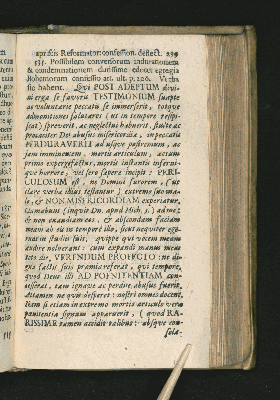 apriscis Reformator: confession. deflect. 239
131. Possibilem conversorum indurationem
& condemnationem durissimè edocet egregia
Bohemorum confessio art. ult. p. 220. Verba
sic habent. Qui POST ADEPTUM divi-
ni erga se favoris TESTIMONIUM suapte
ac voluntarie peccato se immerserit, totque
admonitiones salutares (ut in tempore resipi-
sus) spreverit, ac neglectas habuerit, stulte ac
procaciter Dei abusus misericordia, in peccatis
PERDURAVERIT ad usque postremum, ac
jam imminentem, mortis articulum, actum
primo expergefactus, mortis instantis inferni-
que horrore, vel sero sapere incipit: PERI-
CULOSUM est, ne Domini furorem,
NON MISERICORDIAM experiatur,
Clamabunt (inquit Dn. apud Mich. 3.) ad me,
& non exaudiam eos, & abscondam faciem
meam ab eis in tempore illo, sicut nequiter ege-
runt in studiis suis; quippe qui vocem meam
audire noluerant: cum expandi manum meam
tota die, VERENDUM PROFECTO: ne di-
gna factis suis præmia referat, qui tempore,
quod Deus illi AD POENITENTIAM con-
cesserat, tam ignave ac perdite abusus fuerit.
Attamen ne quis desperet: nostri omnes docent,
Etiam si etiam in extremo mortis articulo vera
pœnitentia signum apparuerit, (quod RA-
RISSIME tamen accidit talibus: absque con-
sola-